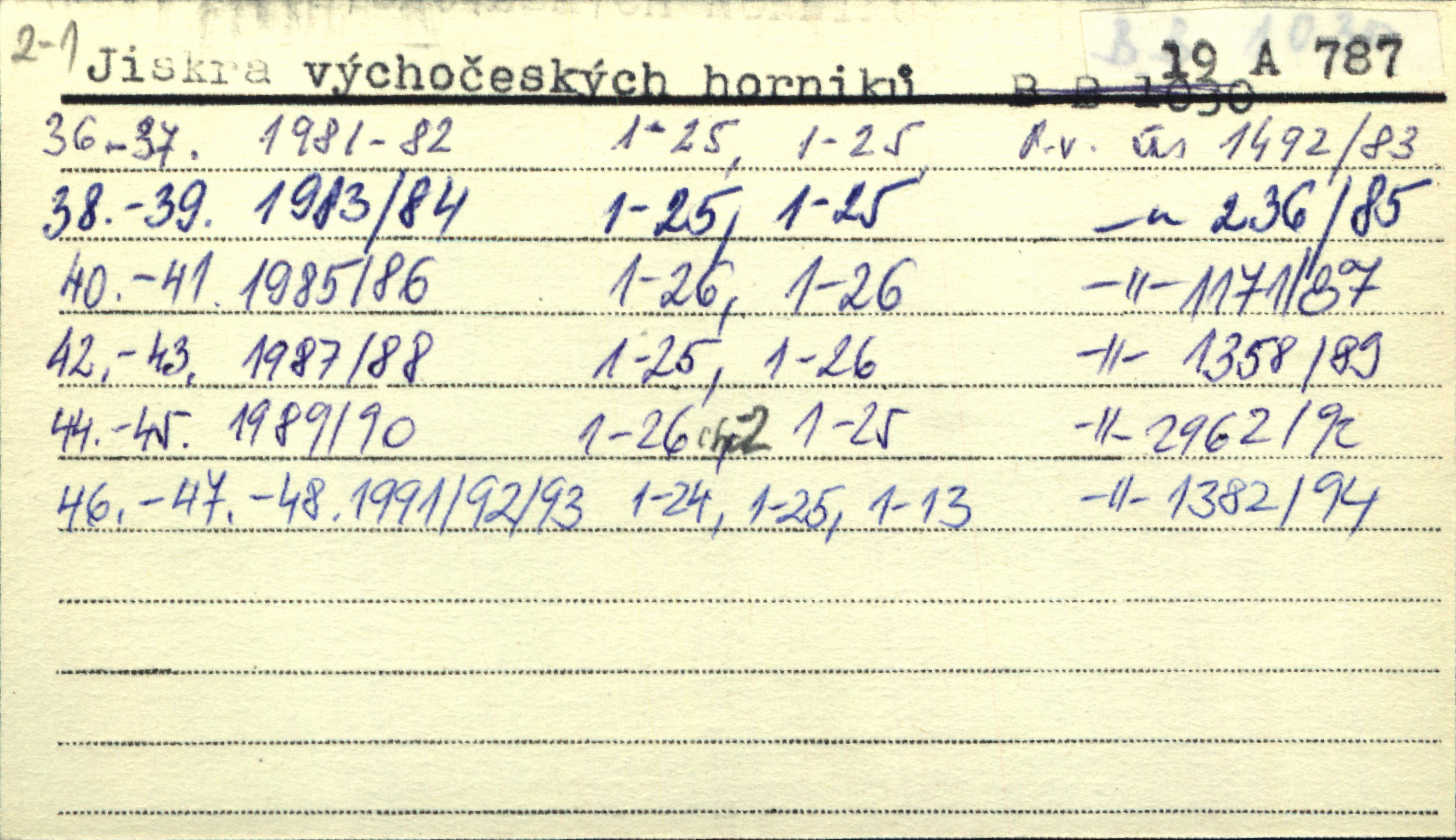 2-1 Jiskra výchočeských horniků 19 A 787
B B 1030
36.-37. 1981-82 1-25, 1-25, P.v. čas 1492/83
38.-39. 1983/84 1-25, 1-25 -"- 236/85
40.-41. 1985/86 1-26, 1-26 -"- 1171/87
42.-43. 1987/88 1-25, 1-26 -"- 1358/89
44.-45. 1989/90 1-26, 1-25 -"- 2962/92
46.-47.-48. 1991/92/93 1-24, 1-25, 1-13 -"- 1382/94